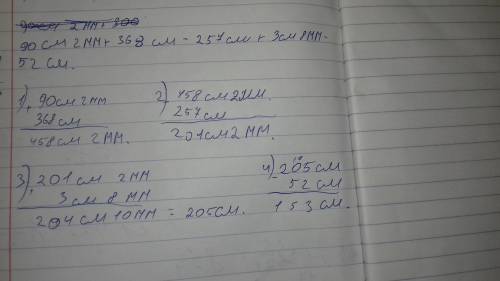 90см 2мм + 368 см - 257см + 3см 8мм -
52 см.
1) + 90см 2мм
368см
458см 2мм.
2) - 458см 2мм.
257см
201см 2мм.
3) + 201см 2мм
3см 8мм
204см 10мм = 205см.
4) - 205см
52см
153см.